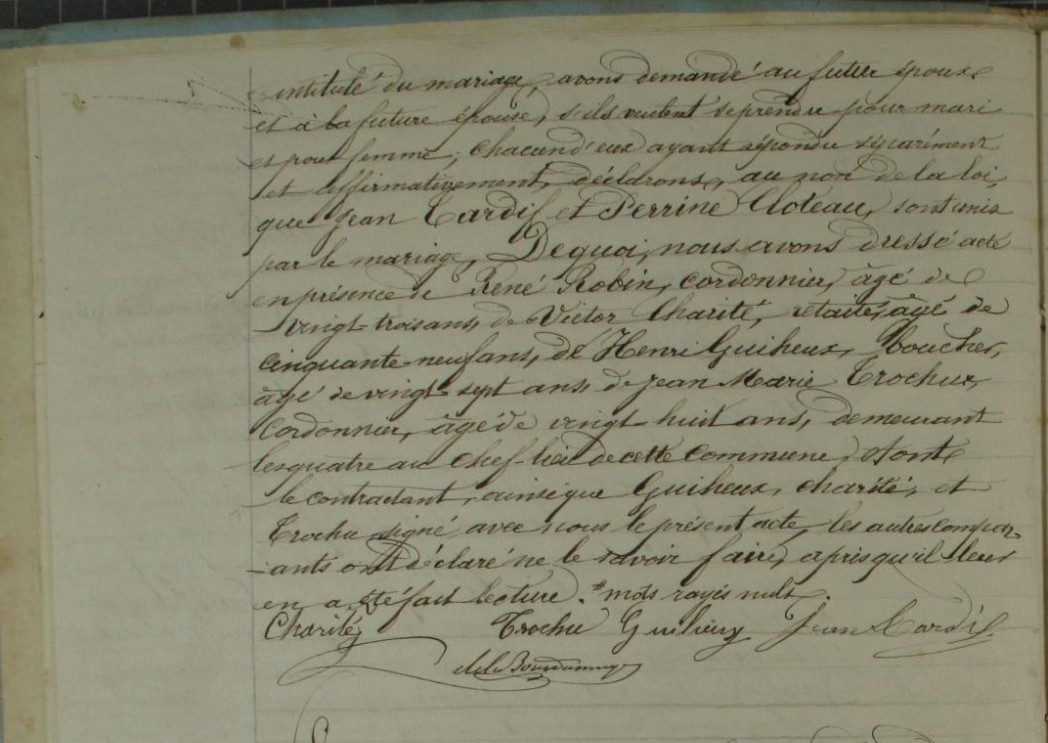 intitulé du mariage, avons demandé au futur époux
et à la future épouse, s'ils veulent se prendre pour mari
et pour femme; chacun d'eux ayant répondu séparément
et affirmativement, déclarons, au nom de la loi,
que Jean Tardif et Perrine Cloteau, sont unis
par le mariage, De quoi, nous avons dressé acte
en présence de René Robin, cordonnier, âgé de
vingt-trois ans, de Victor Charité, retraité, âgé de
cinquante-neuf ans, de Henri Guiheux, boucher,
âgé de vingt sept ans, de Jean Marie Trochu,
Cordonnier, âgé de vingt-huit ans, demeurant
les quatre au chef-lieu de cette commune, dont
le contractant, ainsi que Guiheux, charité, et
Trochu signé avec nous le présent acte, les autres compar-
-ants ont déclaré ne le savoir faire, après qu'il leur
en a été fait lecture. mots rayés nuls.
Charité Trochu Guiheux Jean Tardif